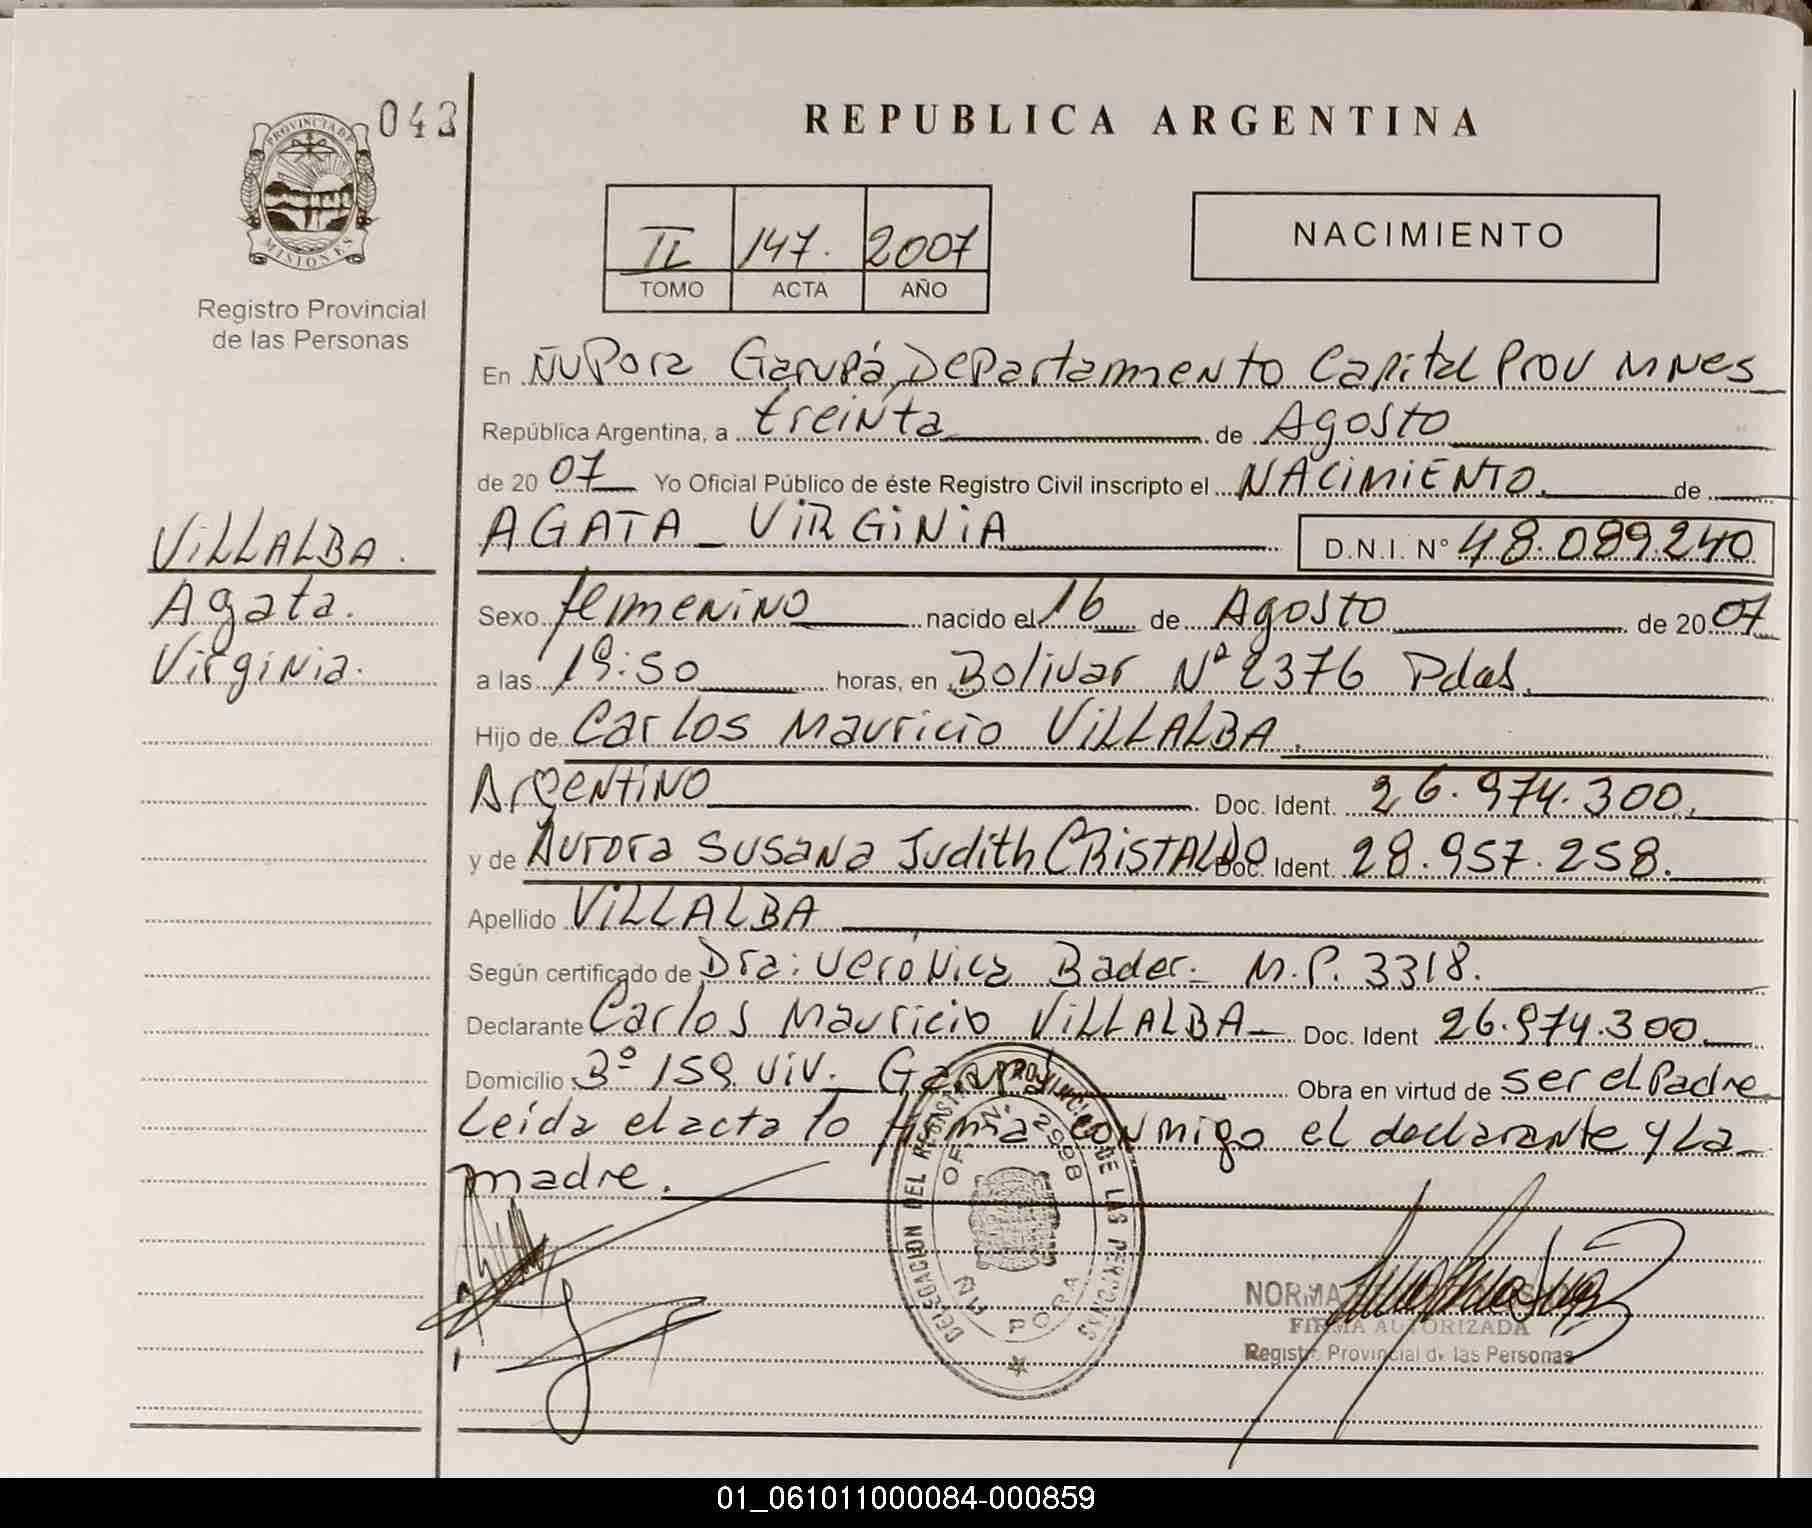 043
PROVINCIA DE
MISIONES
Registro Provincial
de las Personas
REPUBLICA ARGENTINA
II 147. 2007
TOMO ACTA AÑO
NACIMIENTO
En ÑuPora Garupá, Departamento Capital Prov MNes
República Argentina, a treinta de Agosto
de 20 07 Yo Oficial Público de éste Registro Civil inscripto el NACIMIENTO. de
VILLALBA.
Agata.
Virginia.
AGATA - VIRGINIA D.N.I. N° 48.089.240
Sexo femenino nacido el 16 de Agosto de 20 07
a las 19:50 horas, en Bolivar Nº 2376 Pdas.
Hijo de Carlos Mauricio VILLALBA.
Argentino Doc. Ident. 26.974.300.
y de Aurora Susana Judith CRISTALDO Doc. Ident. 28.957.258.
Apellido VILLALBA
Según certificado de Dra: Verónica Bader.- M.P. 3318.
Declarante Carlos Mauricio VILLALBA- Doc. Ident 26.974.300
Domicilio Bº 159 Viv. Garupá Obra en virtud de ser el Padre
Leída el acta lo firma conmigo el declarante y la
madre.
DELEGACION DEL REGISTRO PROVINCIAL DE LAS PERSONAS
OFIC. 2998
ÑU PORA
NORMA
FIRMA AUTORIZADA
Registro Provincial de las Personas
01_061011000084-000859